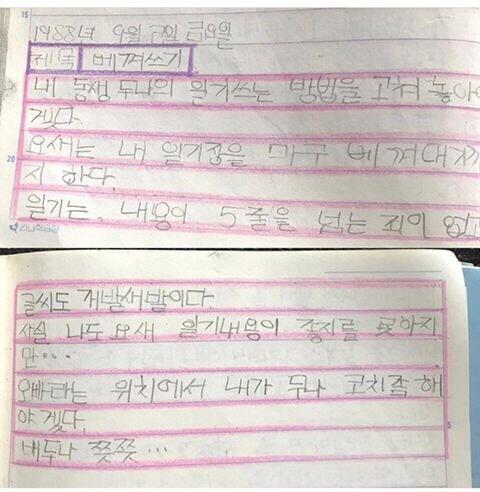 1988년 9월 7일 금요일
제목 베껴쓰기
내 동생 두나의 일기쓰는 방법을 고쳐 놓아야
겟다.
요새는 내 일기장을 마구 베껴대기까
지 한다.
일기는, 내용이 5줄을 넘는 적이 없고
글씨도 개발새발이다.
사실 나도 요새 일기내용이 좋지를 못하지
만…
오빠라는 위치에서 내가 두나 고치좀 해
야 겟다.
배두나 쯧쯧…
20
15
5